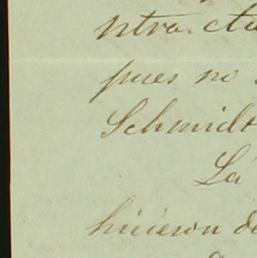 ntra. cta
pues no
Schmidt
La
hicieron de